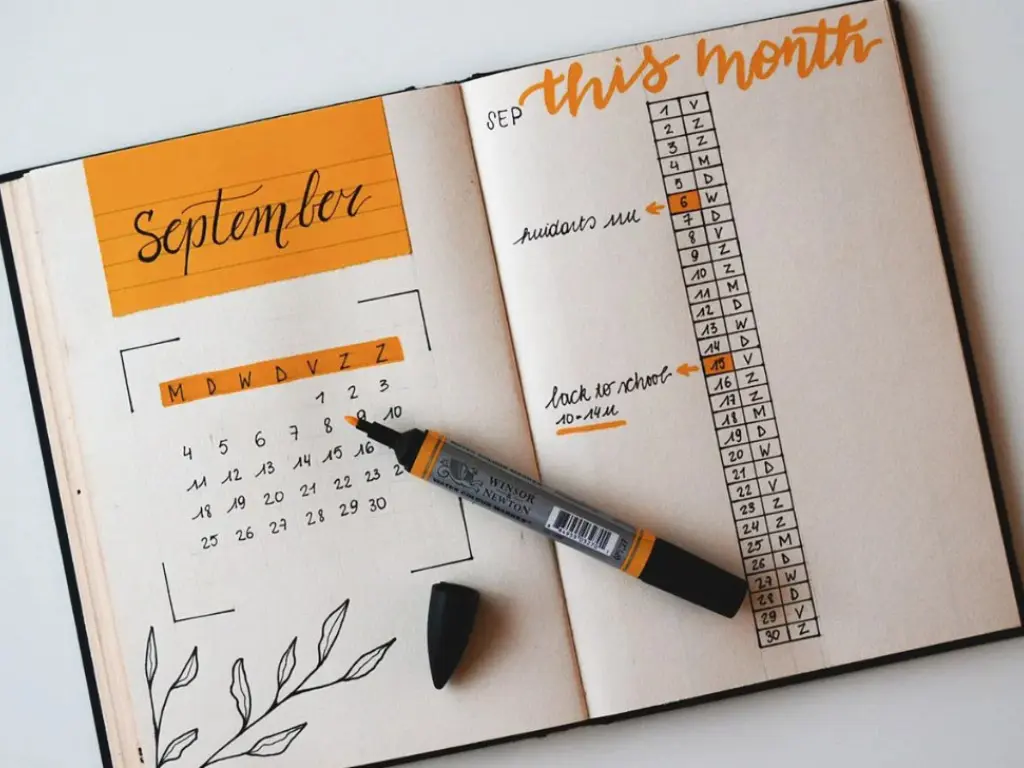 September
M D W D V Z Z
1 2 3
4 5 6 7 8 9 10
11 12 13 14 15 16
18 19 20 21 22 23
25 26 27 28 29 30
WINSOR
NEWTON
WATER COLOUR MARKER
this month
SEP
1 V
2 Z
3 Z
4 M
5 D
6 W
7 D
8 V
9 Z
10 Z
11 M
12 D
13 W
14 D
15 V
16 Z
17 Z
18 M
19 D
20 W
21 D
22 V
23 Z
24 Z
25 M
26 D
27 W
28 D
29 V
30 Z
back to school
10-14u